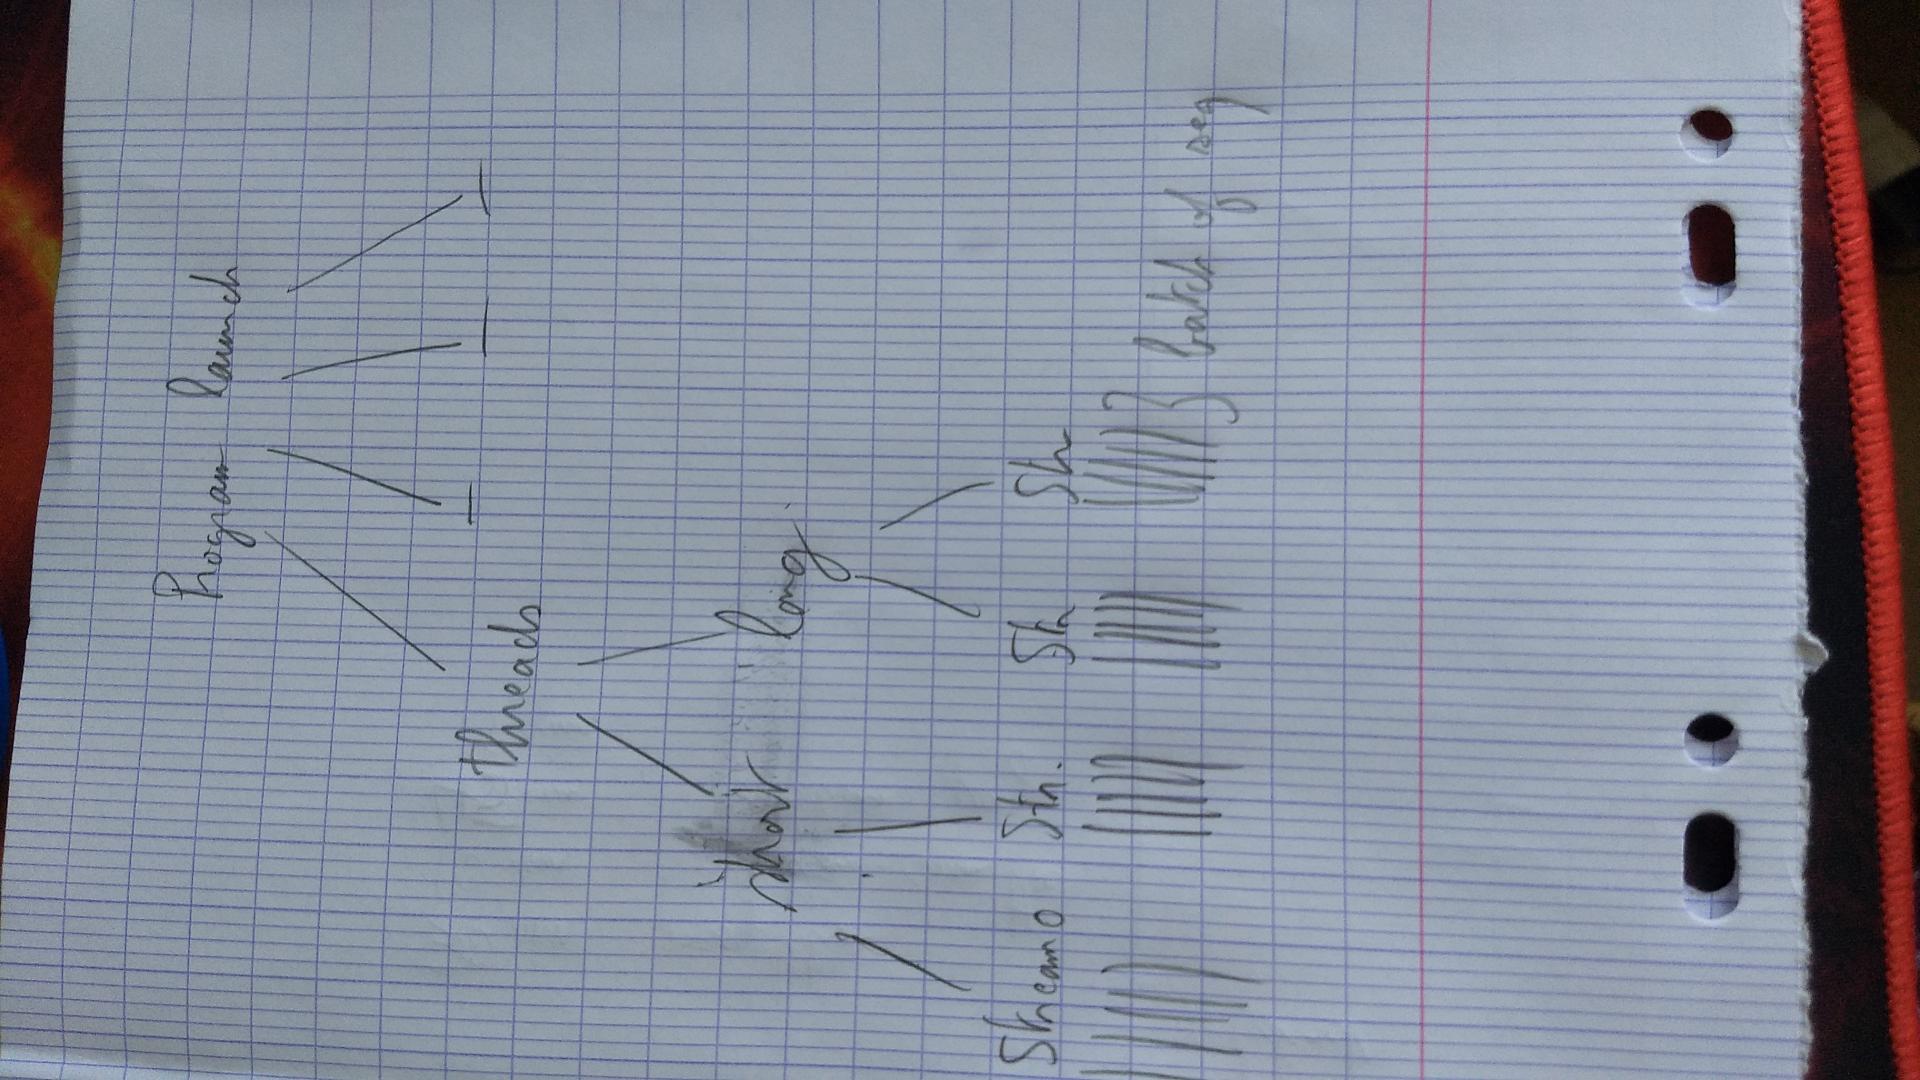 Program launch
threads
short long
Stream0 Str. Str Str
batch of seq